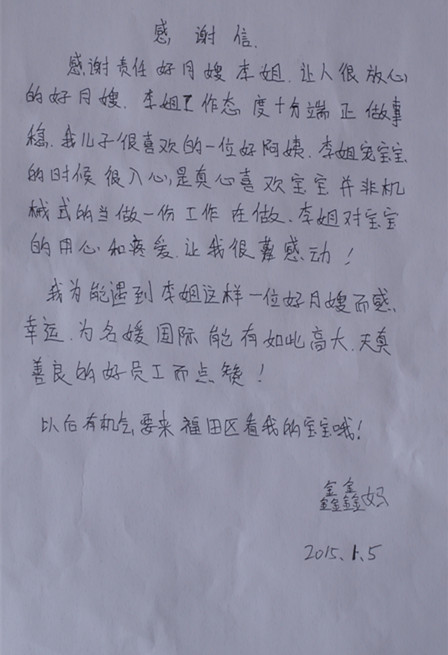 感谢信.
感谢责任好月嫂李姐.让人很放心
的好月嫂.李姐工作态度十分端正做事
稳.我儿子很喜欢的一位好阿姨.李姐宠宝宝
的时候很入心,是真心喜欢宝宝并非机
械式的当做一份工作在做.李姐对宝宝
的用心和疼爱.让我很感动!
我为能遇到李姐这样一位好月嫂而感
幸运.为名媛国际能有如此高大.天真
善良的好员工而点赞!
以后有机会要来福田区看我的宝宝哦!
鑫鑫妈
2015.1.5